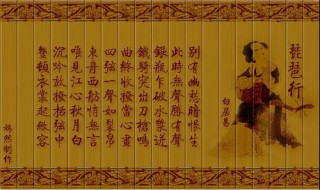 琵琶行
白居易
別有幽愁暗恨生
此時無聲勝有聲
銀瓶乍破水漿迸
鐵騎突出刀槍鳴
曲終收撥當心畫
四弦一聲如裂帛
東舟西舫悄無言
唯見江心秋月白
沉吟放撥插弦中
整頓衣裳起斂容